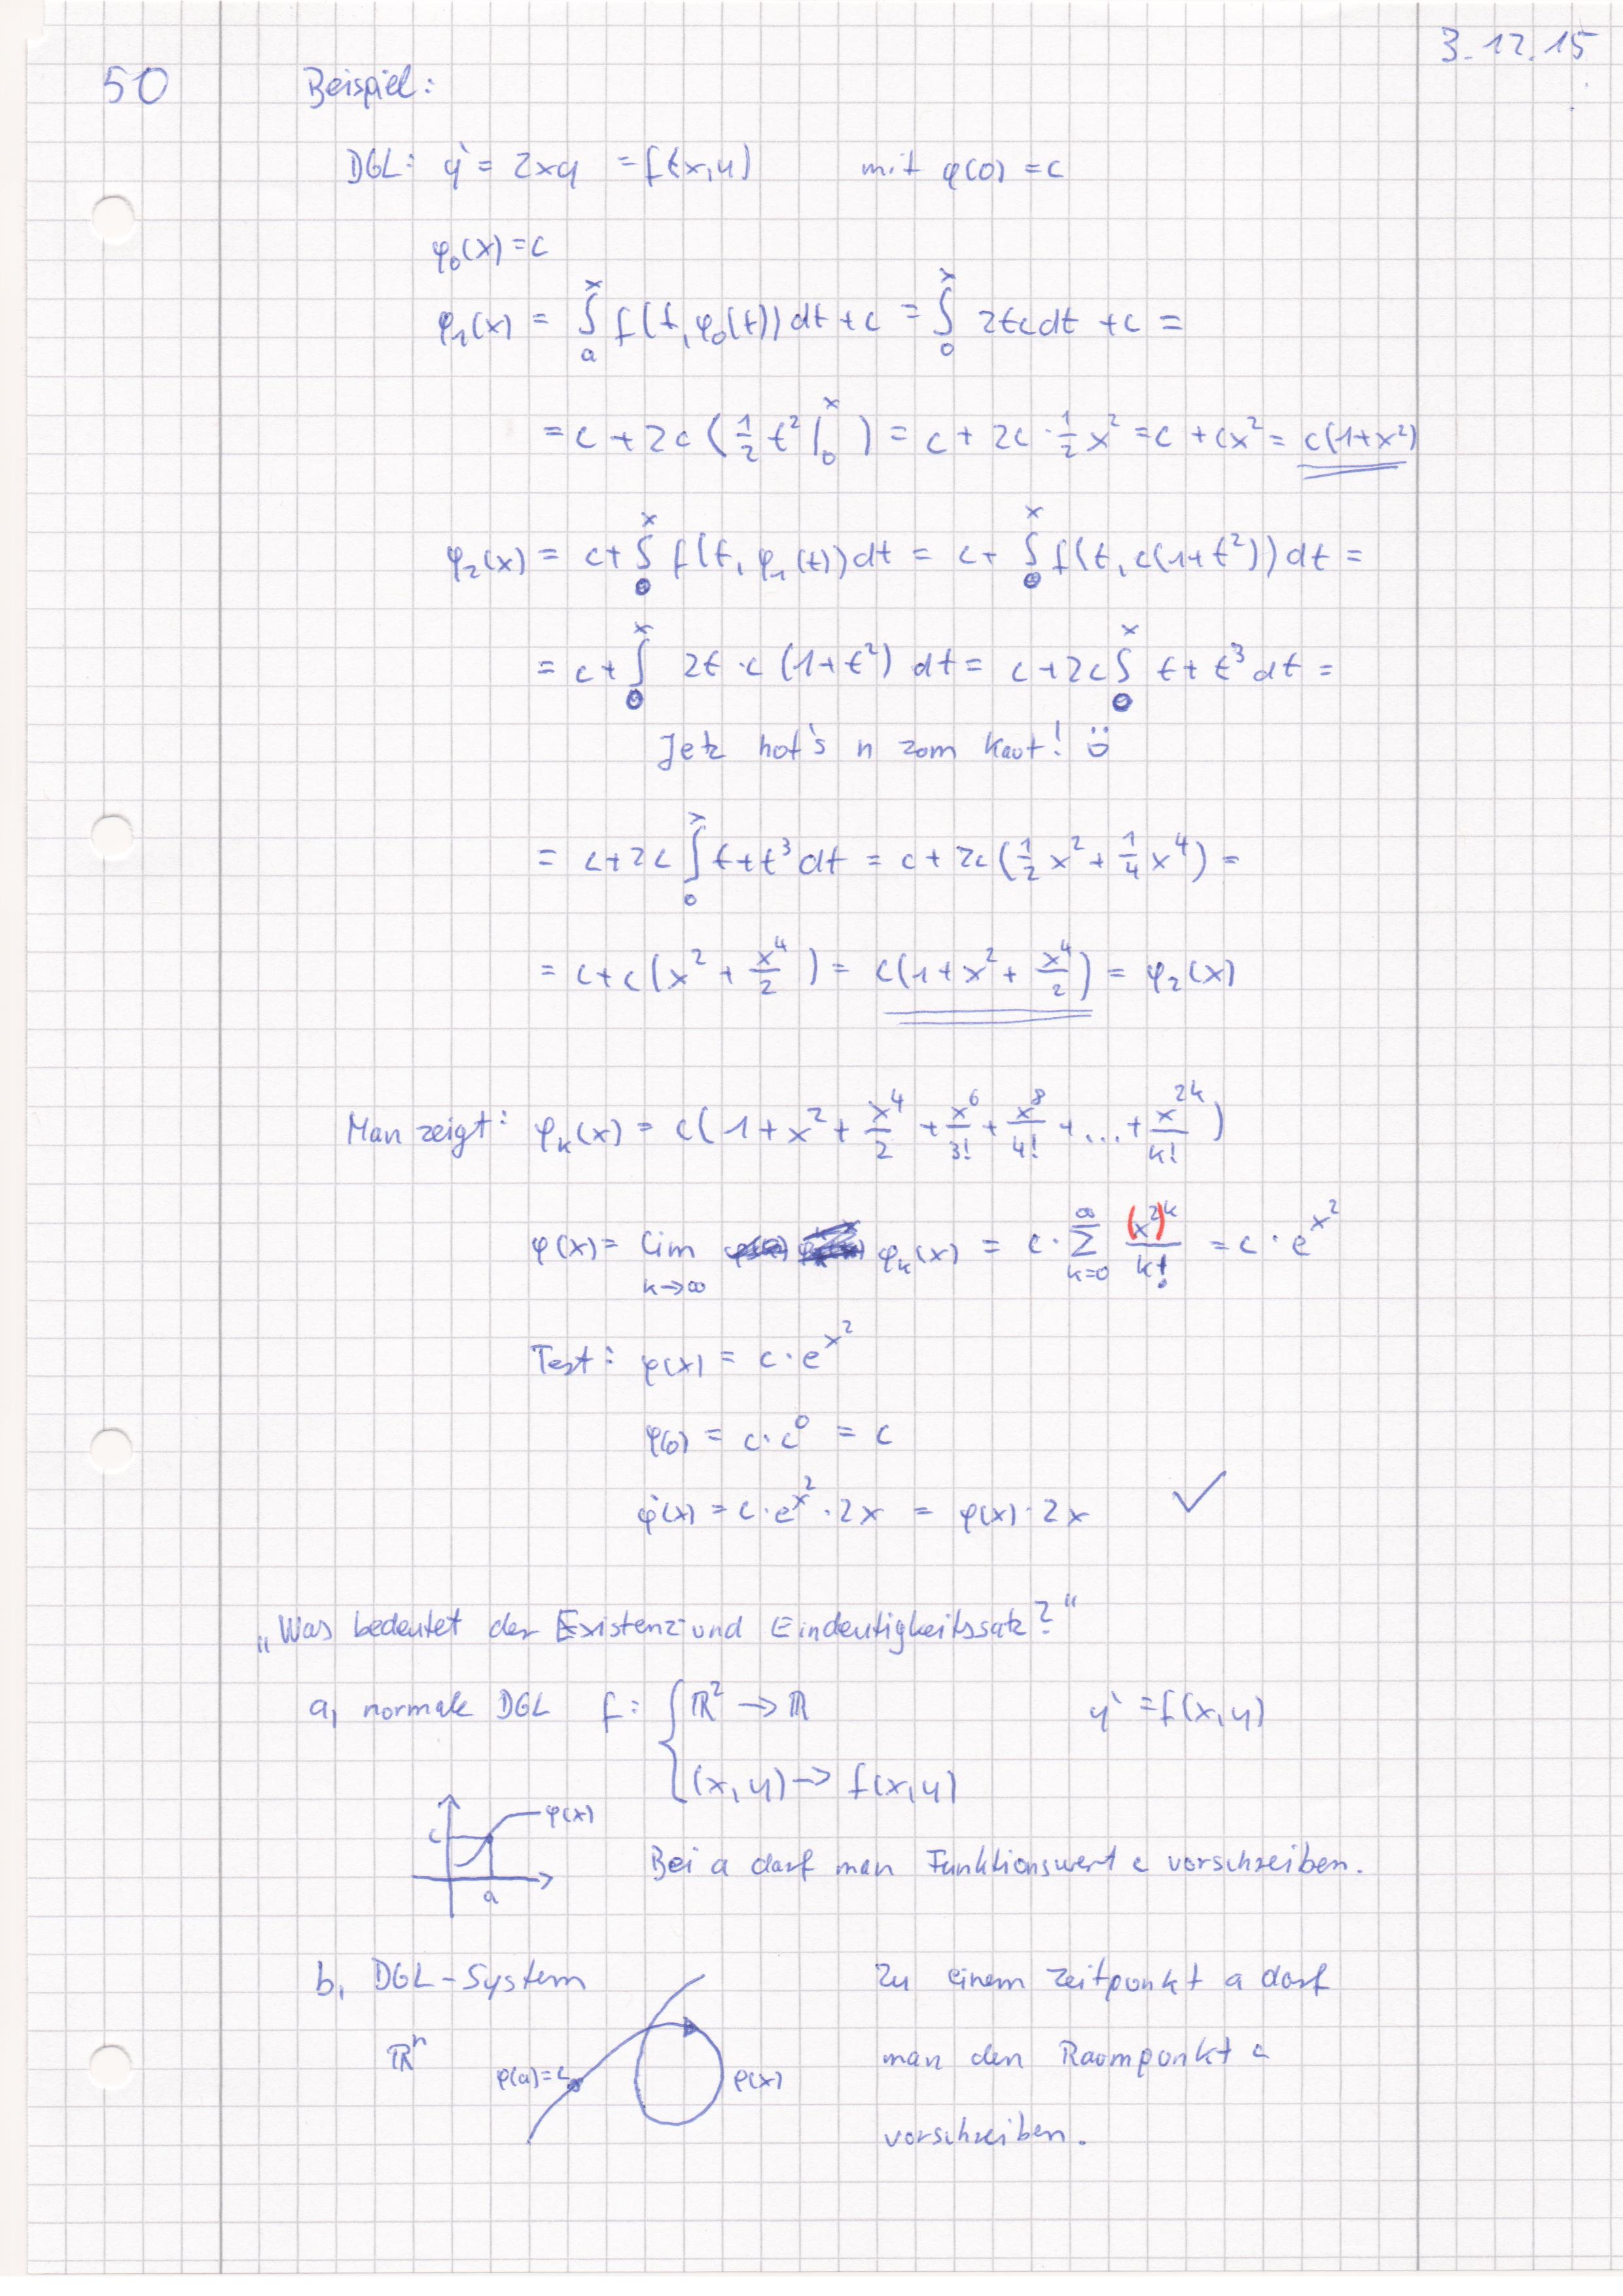 3.12.15
50 Beispiel:
DGL: y' = 2xy = f(x,y) mit φ(0) = c
φ₀(x) = c
φ₁(x) = ∫ₐˣ f(t, φ₀(t)) dt + c = ∫₀ˣ 2tc dt + c =
= c + 2c (1/2 t² |₀ˣ) = c + 2c · 1/2 x² = c + cx² = c(1+x²)
φ₂(x) = c + ∫₀ˣ f(t, φ₁(t)) dt = c + ∫₀ˣ f(t, c(1+t²)) dt =
= c + ∫₀ˣ 2t · c (1+t²) dt = c + 2c ∫₀ˣ t + t³ dt =
Jetz hot's n zom kaut! ö
= c + 2c ∫₀ˣ t + t³ dt = c + 2c (1/2 x² + 1/4 x⁴) =
= c + c (x² + x⁴/2) = c(1 + x² + x⁴/2) = φ₂(x)
Man zeigt: φₖ(x) = c(1 + x² + x⁴/2 + x⁶/3! + x⁸/4! + ... + x²ᵏ/k!)
φ(x) = lim k→∞ φₖ(x) = c · ∑ k=0 ∞ (x²)ᵏ/k! = c · e^x²
Test: φ(x) = c · e^x²
φ(0) = c · c⁰ = c
φ'(x) = c · e^x² · 2x = φ(x) · 2x ✓
„Was bedeutet der Existenz und Eindeutigkeitssatz?"
a, normale DGL f: { ℝ² → ℝ y' = f(x,y)
(x,y) → f(x,y)
φ(x)
c
a
Bei a darf man Funktionswert c vorschreiben.
b, DGL-System Zu einem Zeitpunkt a darf
ℝⁿ man den Raumpunkt c
φ(a)=c φ(x)
vorschreiben.